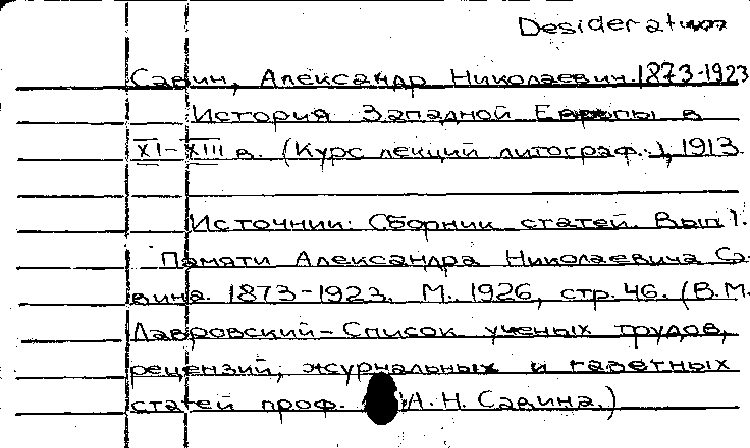 Desideratum
Савин, Александр Николаевич. 1873-1923
История Западной Европы в
XI-XIII в. (Курс лекций литограф.), 1913.
Источник: Сборник статей. Вып. 1.
Памяти Александра Николаевича Са-
вина. 1873-1923. М. 1926, стр. 46. (В.М.
Лавровский - Список ученых трудов,
рецензий, журнальных и газетных
статей проф. А.Н. Савина.)